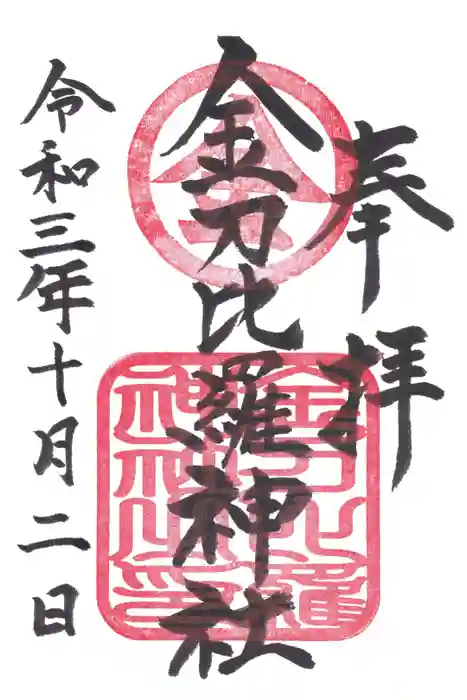 奉拝
金刀比羅神社
令和三年十月二日
金
金刀比羅神社之印